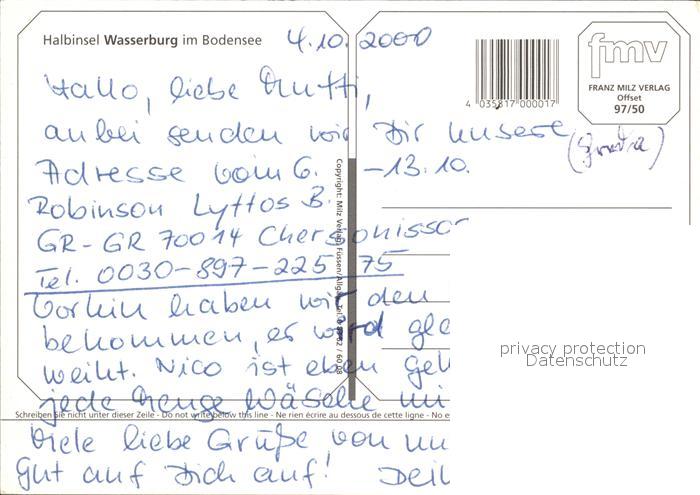 Halbinsel Wasserburg im Bodensee
4.10.2000
Hallo, liebe Mutti,
anbei senden wir Dir unsere
Adresse vom 6. -13.10.
Robinson Lyttos B.
GR-GR 70014 Chersonissos
Tel. 0030-897-22575
Vorhin haben wir den
bekommen, es wird
weiht. Nico ist eben
jede Menge Wäsche mi
Viele liebe Grüße von un
Gut auf Dich auf! Dei
fmv
FRANZ MILZ VERLAG
Offset
97/50
4 035817 000017
Copyright: Milz Verlag Füssen/Allgäu
Schreiben Sie nicht unter dieser Zeile - Do not write below this line - Ne rien écrire au dessous de cette ligne - No e
privacy protection
Datenschutz